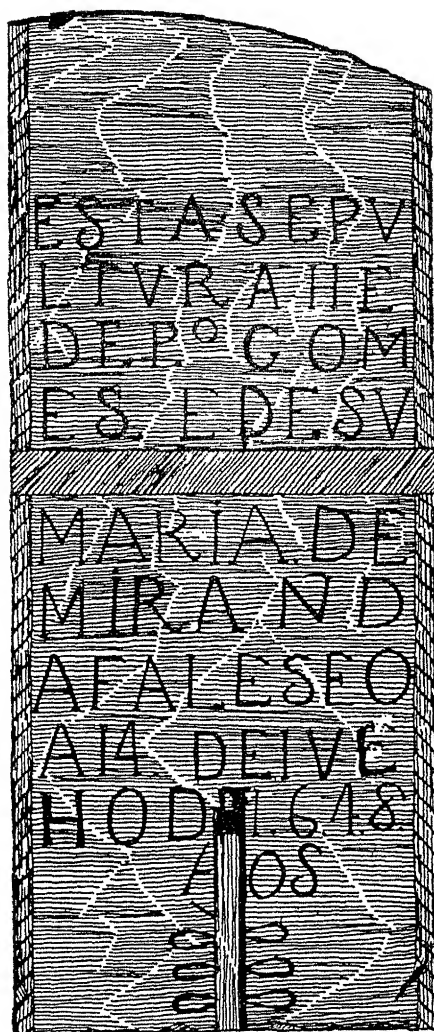 ESTA SEPV
LTVRA HE
DE P.º GOM
ES E DE SV
MARIA DE
MIRAND
A FALESEO
A 14 DE IVE
HO D 1.6.4.8.
A OS